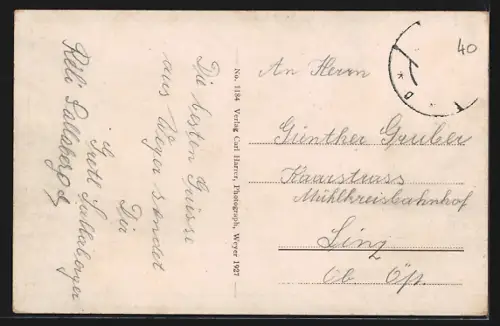 Die besten Grüsse
aus Weyer sendet
Dir
Gretl Sallaberger
Reli Sallaberg
No. 1184 Verlag Carl Harrer, Photograph, Weyer 1927
An Herrn
Günther Gruber
Kaarstrass
Mühlkreisbahnhof
Linz
Ob. Öst.
40